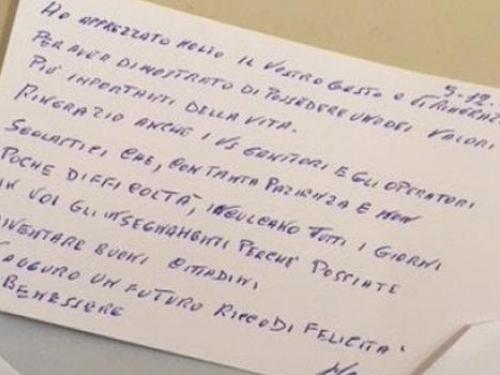 5-12
HO APPREZZATO MOLTO IL VOSTRO GESTO E VI RINGRAZI
PER AVER DIMOSTRATO DI POSSEDERE UNO DEI VALORI
PIÙ IMPORTANTI DELLA VITA.
RINGRAZIO ANCHE I VS GENITORI E GLI OPERATORI
SCOLASTICI CHE, CON TANTA PAZIENZA E NON
POCHE DIFFICOLTÀ, INCULCANO TUTTI I GIORNI
IN VOI GLI INSEGNAMENTI PERCHÉ POSSIATE
DIVENTARE BUONI CITTADINI
AUGURO UN FUTURO RICCO DI FELICITÀ
BENESSERE